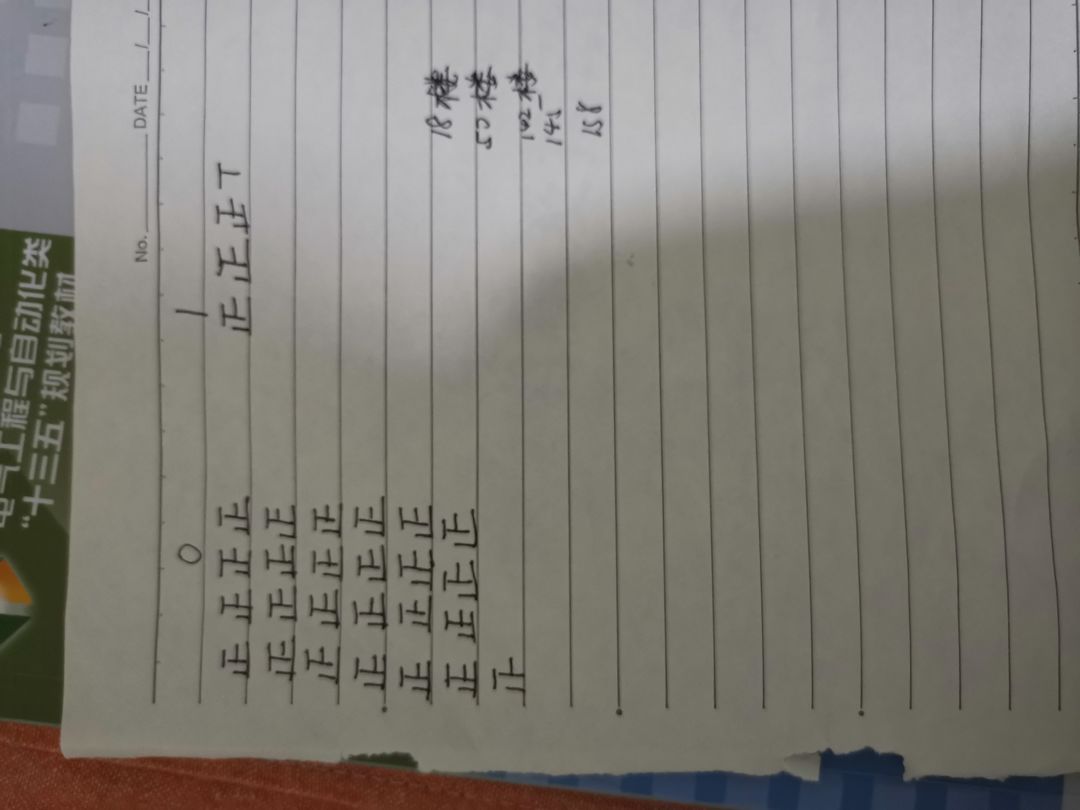 气工程与自动化类
“十三五”规划教材
No. DATE / /
0 1
正正正正 正正正T
正正正正
正正正正
正正正正
正正正正 18楼
正正正正 50楼
正 102楼
158